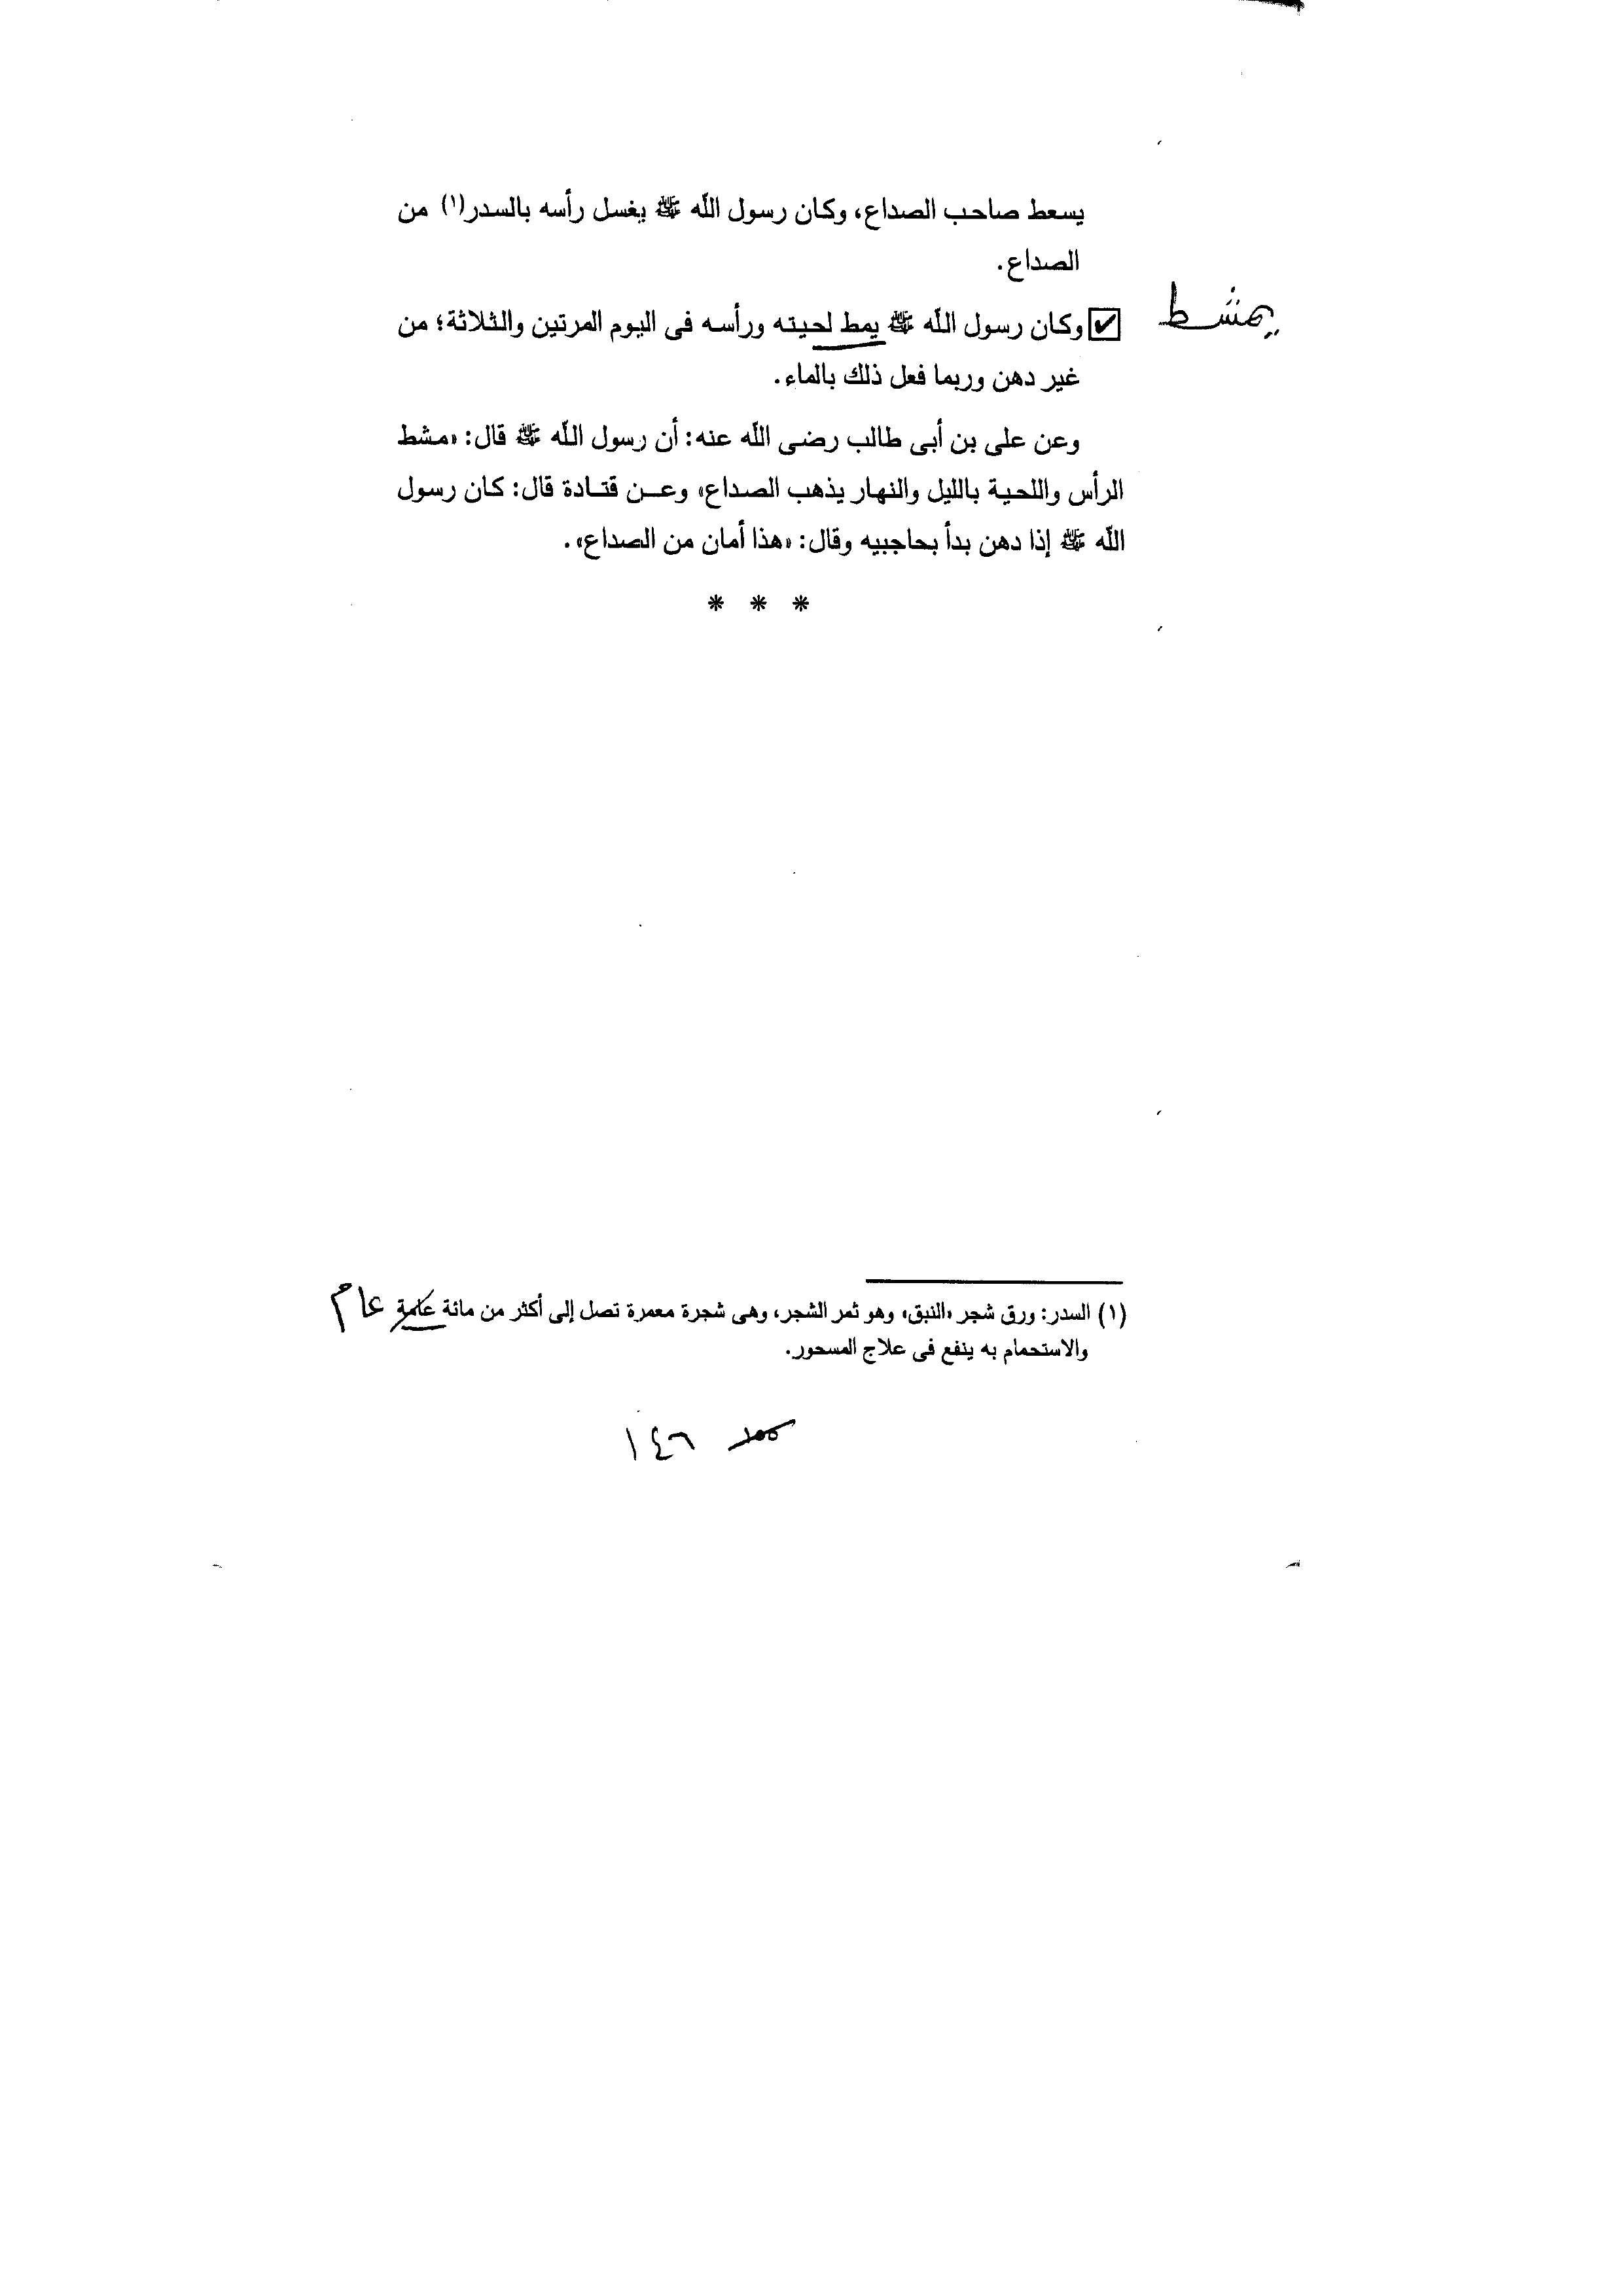 يسعط صاحب الصداع، وكان رسول اللّه ﷺ يغسل رأسه بالسدر(١) من
الصداع.
يمشط
☑ وكان رسول اللّه ﷺ يمط لحيته ورأسه فى اليوم المرتين والثلاثة؛ من
غير دهن وربما فعل ذلك بالماء.
وعن على بن أبى طالب رضى اللّه عنه: أن رسول اللّه ﷺ قال: «مشط
الرأس واللحية بالليل والنهار يذهب الصداع» وعن قتادة قال: كان رسول
اللّه ﷺ إذا دهن بدأ بحاجبيه وقال: «هذا أمان من الصداع».
* * *
(١) السدر: ورق شجر «النبق» وهو ثمر الشجر، وهى شجرة معمرة تصل إلى أكثر من مائة عامة عام
والاستحمام به ينفع فى علاج المسحور.
١٤٦